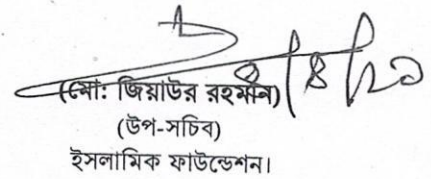 (মো: জিয়াউর রহমান)
(উপ-সচিব)
ইসলামিক ফাউন্ডেশন।